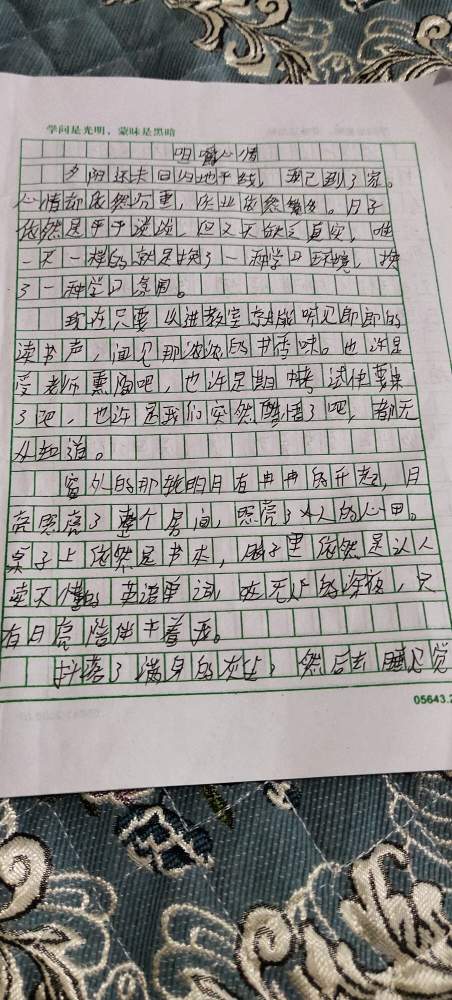 学问是光明，蒙昧是黑暗
心情
夕阳还未回归地平线，我已到了家。
心情却依然沉重，作业依然繁多。日子
依然是平平淡淡，但又不缺乏真实，唯
一不一样的就是换了一种学习环境，换
了一种学习氛围。
现在只要以进教室就能听见郎郎的
读书声，闻见那浓浓的书香味。也许是
受老师熏陶吧，也许是期中考试快要来
了吧，也许是我们突然醒悟了吧，都无
从知道。
窗外的那轮明月有冉冉的升起，月
亮照亮了整个房间，照亮了人的心田。
桌子上依然是书本，脑子里依然是让人
读不懂的英语单词，在无人的深夜，只
有月亮陪伴着我。
抖落了满身的灰尘，然后去睡觉
05643.2